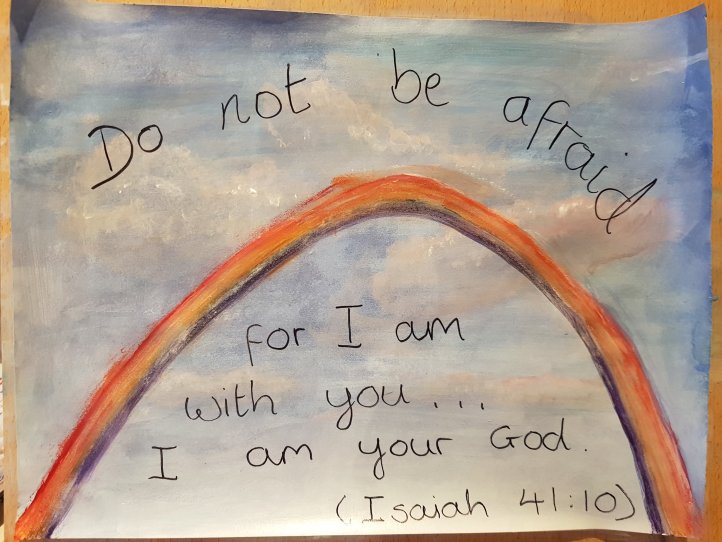 Do not be afraid
for I am
with you...
I am your God.
(Isaiah 41:10)